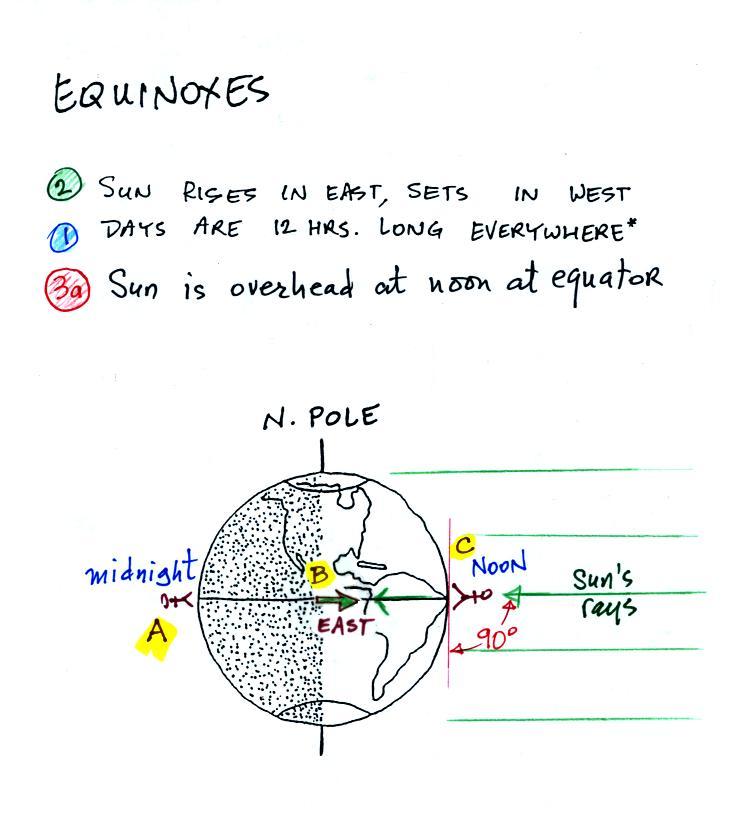 EQUINOXES
2 SUN RISES IN EAST, SETS IN WEST
1 DAYS ARE 12 HRS. LONG EVERYWHERE*
3a Sun is overhead at noon at equator
N. POLE
C
NOON
midnight
B
Sun's
rays
A
EAST
90°